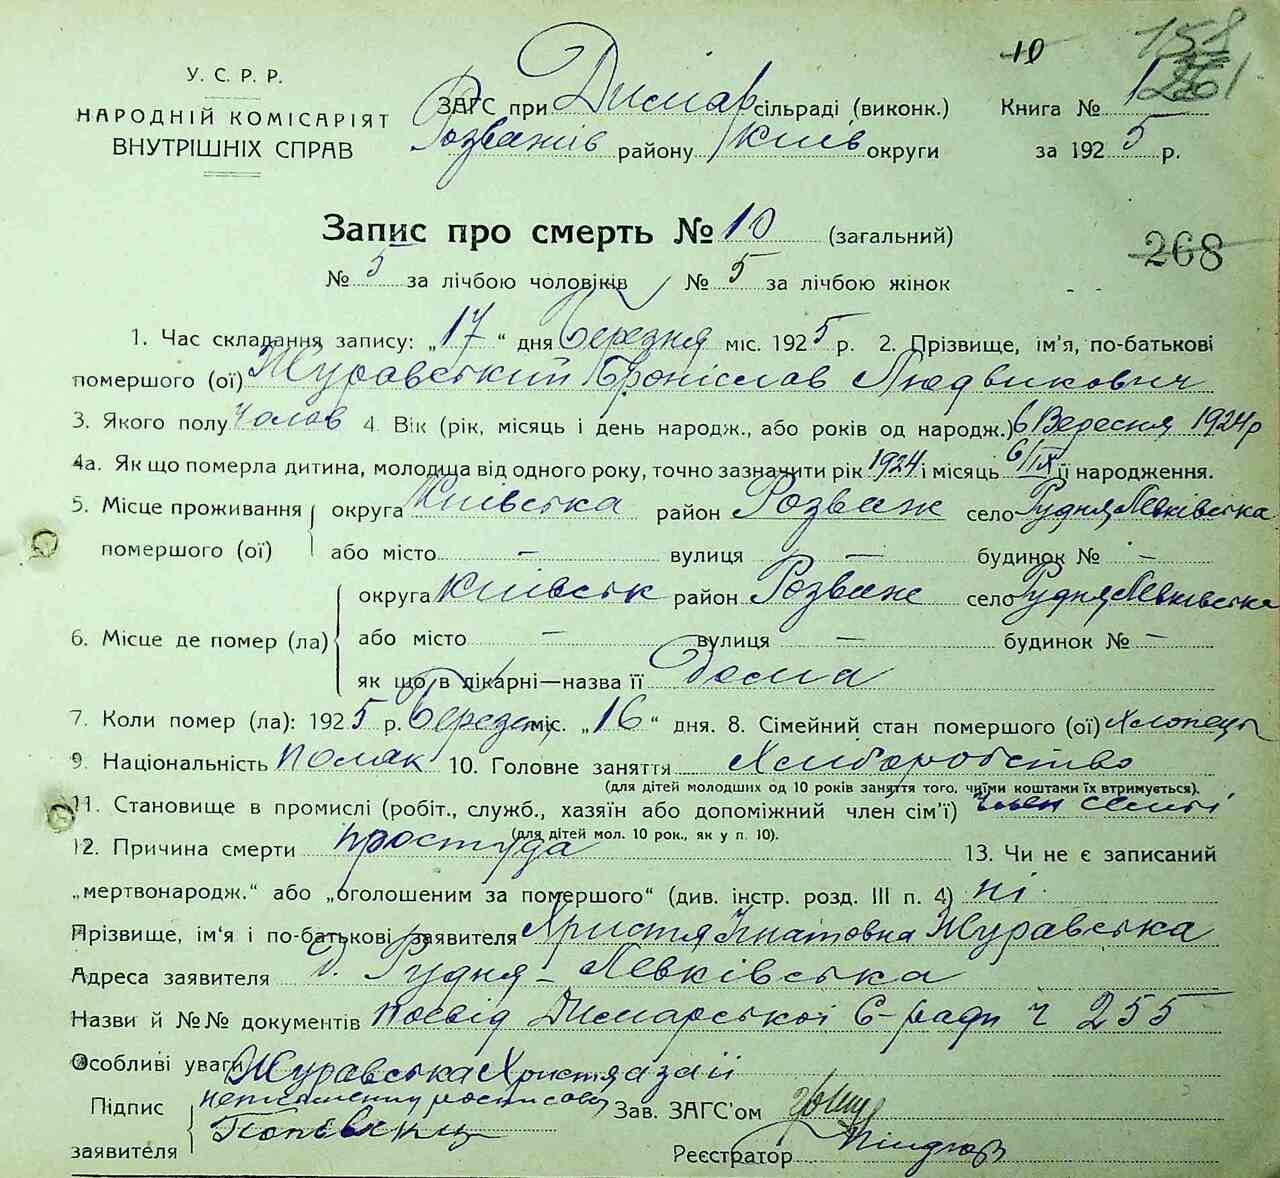 10 158
У. С. Р. Р.
НАРОДНІЙ КОМІСАРІЯТ
ВНУТРІШНІХ СПРАВ
ЗАГС при Димар сільраді (виконк.) Книга № 1
Розважів району Київ округи за 1925 р.
Запис про смерть № 10 (загальний)
268
№ 5 за лічбою чоловіків № 5 за лічбою жінок
1. Час складання запису: „17“ дня Березня міс. 1925 р. 2. Прізвище, ім'я, по-батькові
помершого (ої) Журавський Броніслав Людвикович
3. Якого полу чолов 4. Вік (рік, місяць і день народж., або років од народж.) 6 Вересня 1924 р
4а. Як що померла дитина, молодша від одного року, точно зазначити рік 1924 і місяць 6/IX її народження.
5. Місце проживання округа Київська район Розваж село Рудня Левківська
помершого (ої) або місто — вулиця — будинок № —
округа Київськ район Розваж село Рудня Левківська
6. Місце де помер (ла) або місто — вулиця — будинок № —
як що в лікарні—назва її Дома
7. Коли помер (ла): 1925 р. Березень міс. „16“ дня. 8. Сімейний стан помершого (ої) Хлопець
9. Національність Поляк 10. Головне заняття Хліборобство
(для дітей молодших од 10 років заняття того, чиїми коштами їх втримується).
11. Становище в промислі (робіт., служб., хазяїн або допоміжний член сім'ї) член семьі
(для дітей мол. 10 рок., як у п. 10).
12. Причина смерти простуда 13. Чи не є записаний
„мертвонародж.“ або „оголошеним за помершого“ (див. інстр. розд. III п. 4) ні.
Прізвище, ім'я і по-батькові заявителя Христя Ігнатовна Журавська
Адреса заявителя с. Рудня-Левківська
Назви й №№ документів посвід Димарської С-ради ч 255
Особливі уваги Журавська Христя а за її
Підпис неписьменну росписов Зав. ЗАГС'ом
заявителя
Реєстратор